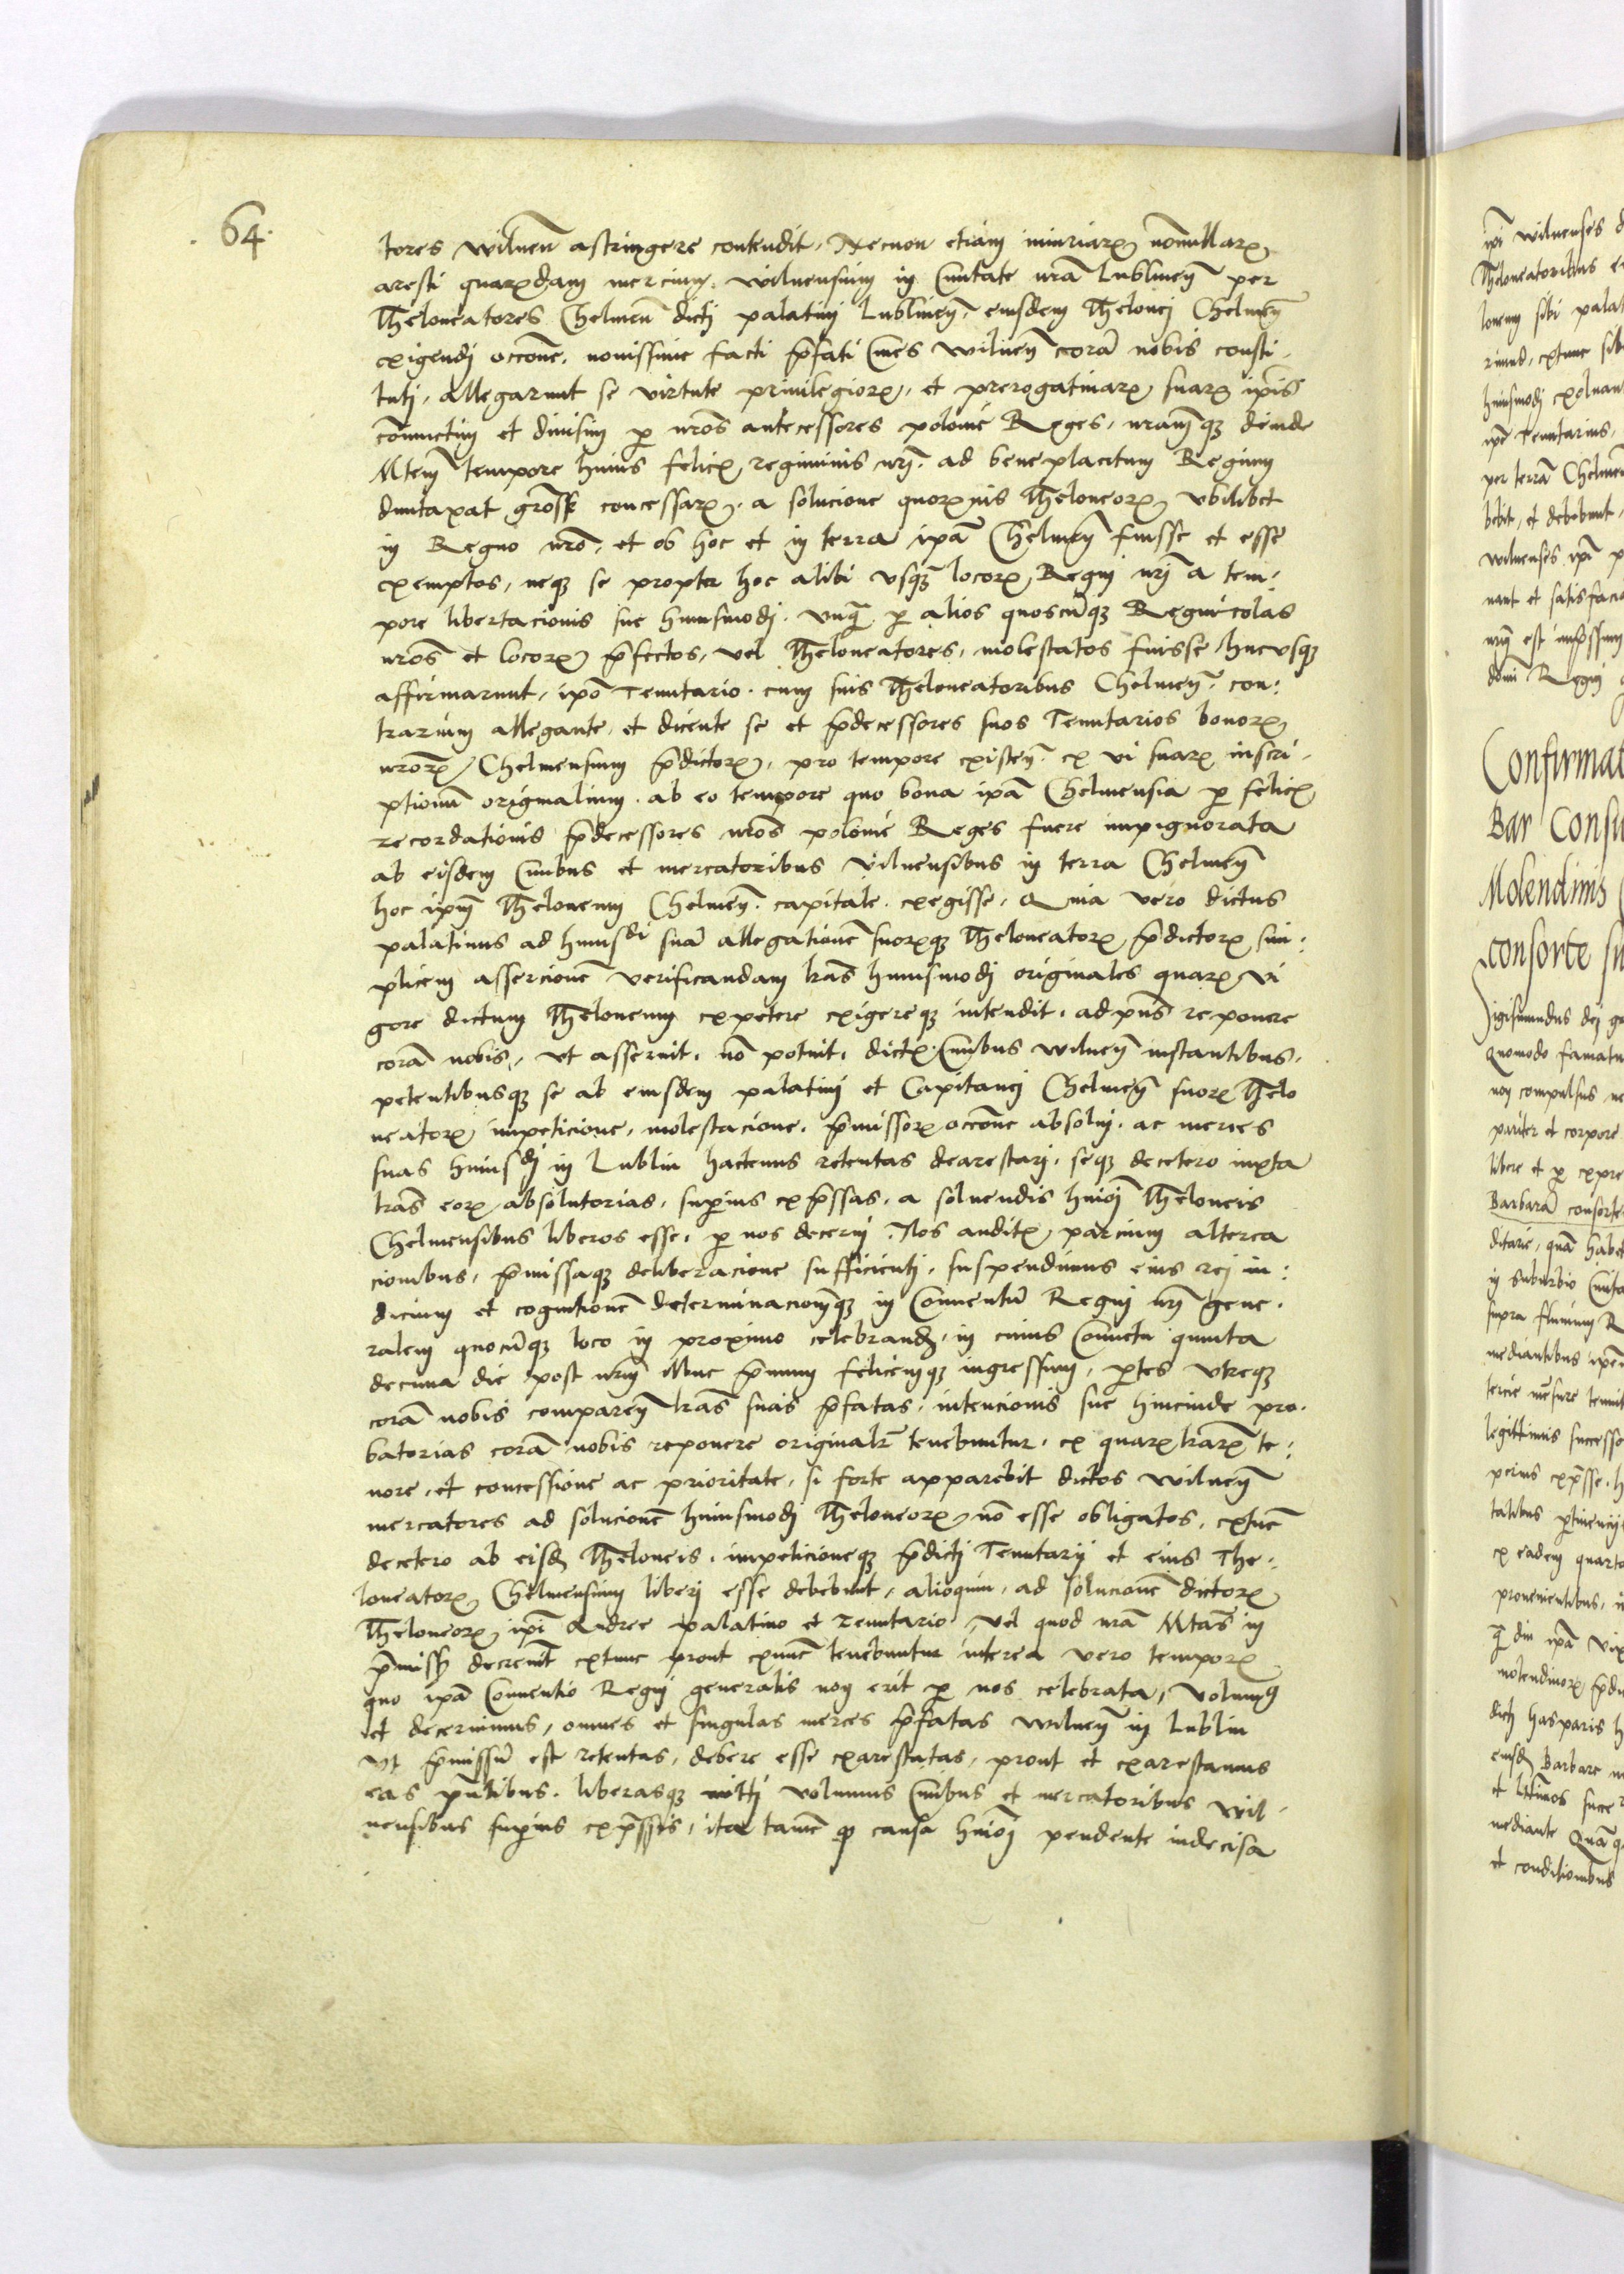 64.
tores Wilneñ astringere contendit, Necnon etiam iniuriarꝫ nonnullarꝫ
aresti quarꝫdam mercium, Vilnensium in Ciuitate nrã Lublineñ per
Theloneatores Chelmeñ dicti palatini Lublineñ, eiusdem Thelonei Chelmeñ
exigendj occone, nouissime facti p̃fati Ciues Wilneñ corã nobis consti-
tuti, allegarunt se virtute priuilegiorꝫ, et prerogatiuarꝫ suarꝫ ip̃is
coniunctim et diuisim p nros antecessores polonie Reges, nramqꝫ deinde
Mtem tempore huius felicꝫ regiminis nrj ad beneplacitum Regium
duntaxat grose concessarꝫ, a solucione quorꝫuis Theloneorꝫ vbilibet
in Regno nro, et ob hoc et in terra ipã Chelmeñ fuisse et esse
exemptos, neqꝫ se propter hoc alibi vsqꝫ locorꝫ Regni nrj a tem-
pore libertacionis sue huiusmodj vnq̃ p alios quoscũqꝫ Regnicolas
nros et locorꝫ p̃fectos, vel Theloneatores, molestatos fuisse hucvsqꝫ
affirmarunt, ipo Tenutario cum suis Theloneatoribus Chelmeñ con-
trarium allegante, et dicente se et p̃decessores suos Tenutarios bonorꝫ
nrorꝫ Chelmensium p̃dictorꝫ, pro tempore existeñ ex vi suarꝫ inscri-
ptionũ originalium, ab eo tempore quo bona ipã Chelmensia p felicꝫ
recordationis p̃decessores nros polonie Reges fuere impignorata
ab eisdem Ciuibus et mercatoribus Vilnensibus in terra Chelmeñ
hoc ipm̃ Theloneum Chelmeñ capitale exegisse, Quia vero dictus
palatinus ad huiusdi suã allegationẽ suorꝫqꝫ Theloneatorꝫ p̃dictorꝫ sim-
plicem assercionẽ verificandam lr̃as huiusmodj originales quarꝫ vi
gore dictum Theloneum expetere exigereqꝫ intendit, ad pñs reponere
corã nobis, vt asseruit, nõ potuit, dictꝫ Ciuibus Wilneñ instantibus,
petentibusqꝫ se ab eiusdem palatini et Capitanei Chelmeñ suorꝫ Thelo
neatorꝫ impeticione, molestacione, p̃missorꝫ occone absolui, ac merces
suas huiusdj in Lublin hactenus retentas dearestarj, seqꝫ decetero iuxta
lr̃as eorꝫ absolutorias, supius exp̃ssas, a soluendis huiõj Theloneis
Chelmensibus liberos esse, p nos decerni, Nos auditꝫ parcium alterca
cionibus, p̃missaqꝫ deliberacione sufficientj, suspendimus eius rej iu-
dicium et cognitionẽ determinacionẽqꝫ in Conuentũ Regni nrj gene-
ralem quocũqꝫ loco in proximo celebrandꝫ, in cuius Conuẽtu quinta
decima die post nrm̃ illuc p̃mum felicemqꝫ ingressum, ptes vtreqꝫ
corã nobis comparẽñ lr̃as suas p̃fatas, intencionis sue hincinde pro-
batorias corã nobis reponere originalr̃ tenebuntur, ex quarꝫ lr̃arꝫ te-
nore, et concessione ac prioritate, si forte apparebit dictos Wilneñ
mercatores ad solucionẽ huiusmodj Theloneorꝫ nõ esse obligatos, extũc
decetero ab eisdꝫ Theloneis, impeticioneqꝫ p̃dicti Tenutarij et eius The-
loneatorꝫ Chelmensium liberj esse debebunt, alioquin, ad solucionẽ dictorꝫ
Theloneorꝫ ipi Andree palatino et Tenutario, vel quod nrã Mtas in
p̃missꝫ decreuit extunc prout exnũc tenebuntur interea vero temporꝫ
quo ipã Conuentio Regnj generalis non erit p nos celebrata, volumꝯ
et decernimus, omnes et singulas merces p̃fatas Wilneñ in Lublin
vt p̃missũ est retentas, debere esse exarestatas, prout et exarestamus
eas pñtibus, liberasqꝫ mitti volumus Ciuibus et mercatoribus Wil-
nensibus supius exp̃ssis, ita tamẽ ꝙ causa huiõj pendente indecisa
ipi Wilnenses
Theloneatoribus
loneum sibi palat
huiusmodj exoluant
per terrã Chelmeñ
bebit, et debebunt,
wilnenses ipi p
nant et satisfacia
domi Regnj
Confirmat
Bar Consu
Molendinis
consorte su
Sigismundus dej g
Quomodo famatu
non compulsus
pariter et corpore
libere et p expre
Barbarã consorte
ditarie, quã habet
in suburbio Ciuita
supra fluuium R
mediantibus
legittimis successo
perius exp̃sse, h
ex eadem quarto
prouenientibus,
molendinorꝫ p̃di
dicti hasparis h
eiusdꝫ Barbare
mediante Quã q
et conditionibus